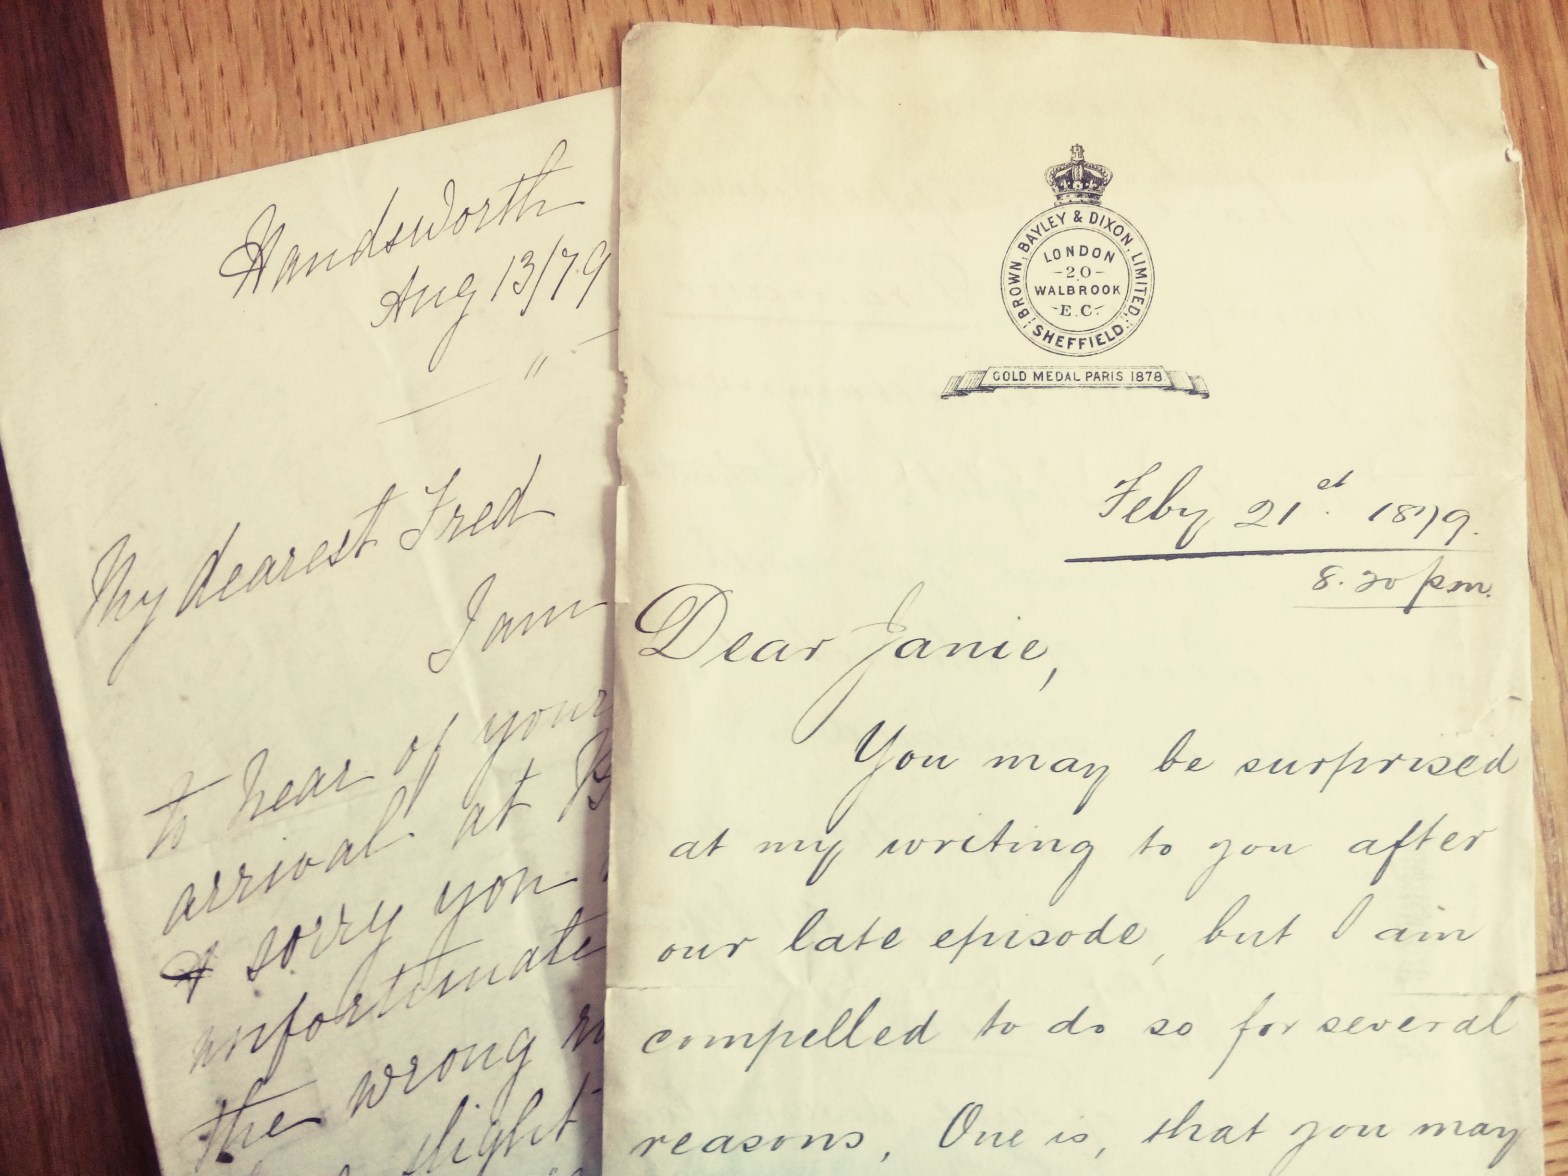 Handsworth
Aug 13/79
"
My dearest Fred
I am
to hear of your
arrival at B
& sorry you
unfortunate
the wrong
slight
BROWN, BAYLEY & DIXON, LIMITED,
SHEFFIELD.
LONDON
-20-
WALBROOK
E.C.
GOLD MEDAL PARIS 1878
Feby 21st 1879.
8.20 pm.
Dear Janie,
You may be surprised
at my writing to you after
our late episode, but I am
compelled to do so for several
reasons, One is, that you may